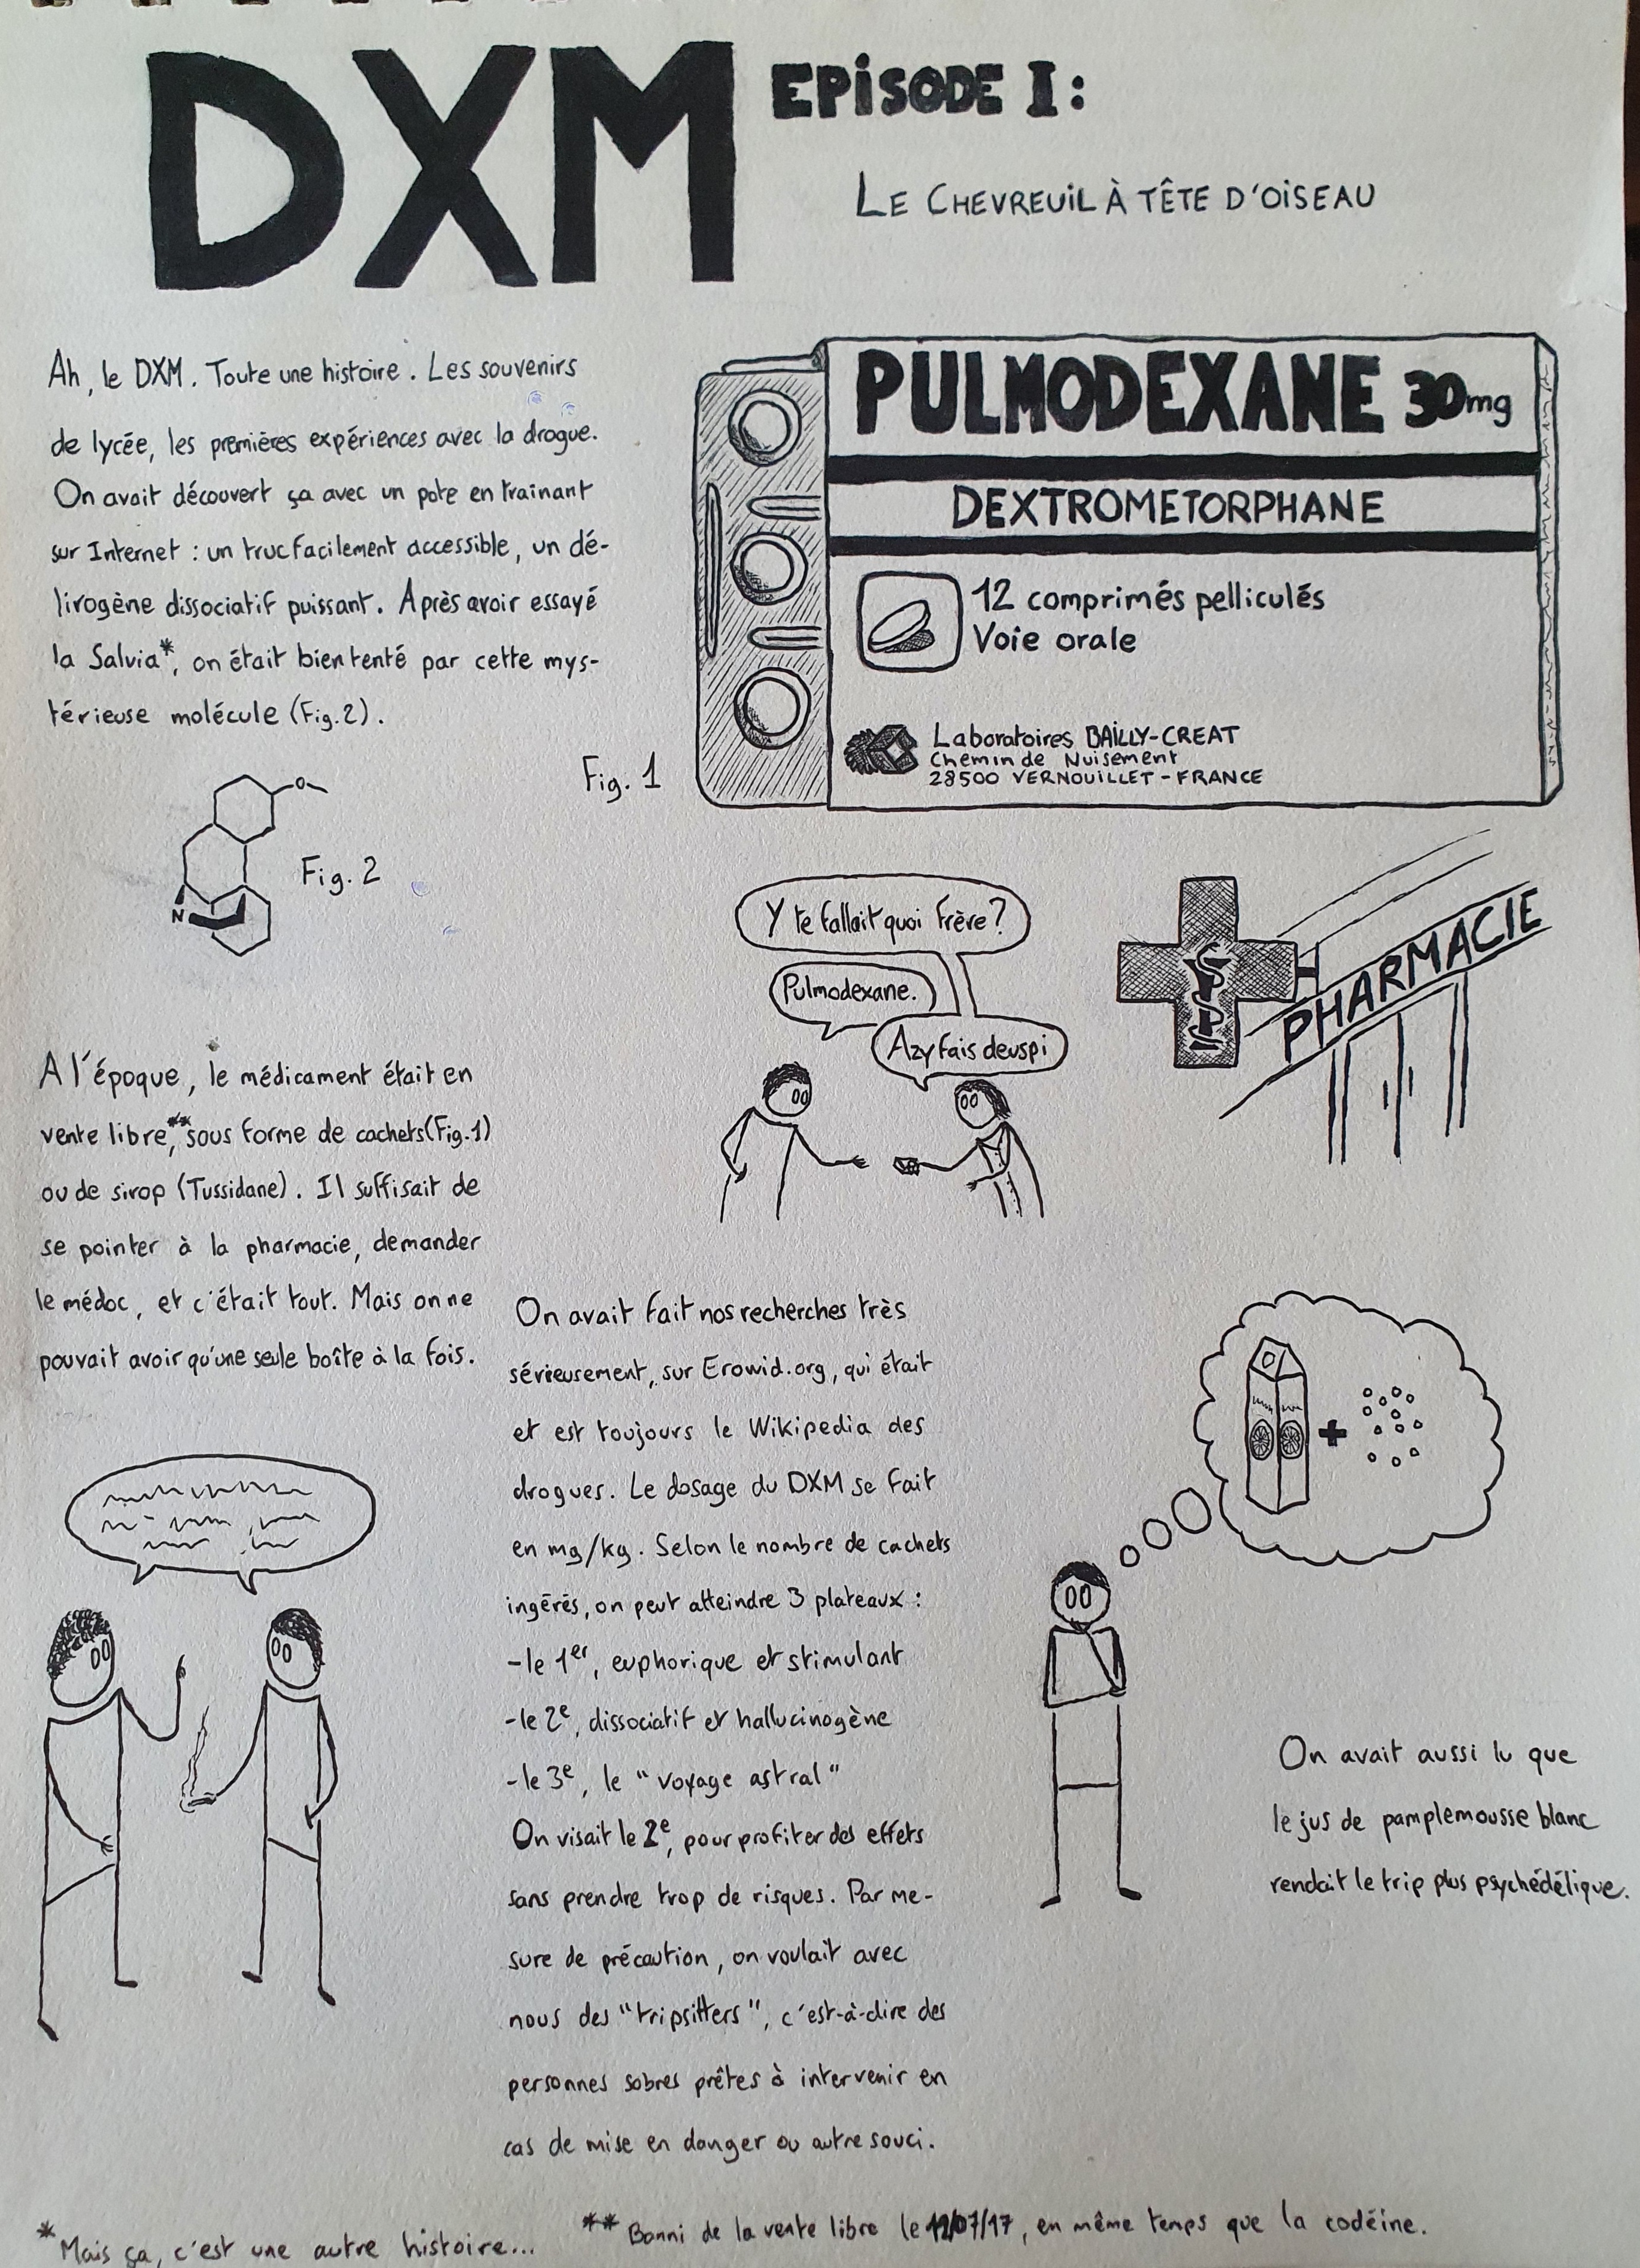 DXM
EPiSODE I :
LE CHEVREUiL À TÊTE D'OiSEAU
Ah, le DXM. Toute une histoire. Les souvenirs
de lycée, les premières expériences avec la drogue.
On avait découvert ça avec un pote en traînant
sur Internet : un truc facilement accessible, un dé-
lirogène dissociatif puissant. Après avoir essayé
la Salvia*, on était bien tenté par cette mys-
térieuse molécule (Fig.2).
PULMODEXANE 30mg
DEXTROMETORPHANE
12 comprimés pelliculés
Voie orale
Laboratoires BAiLLY-CREAT
Chemin de Nuisement
28500 VERNOUiLLET - FRANCE
Fig. 1
O
N
Fig. 2
Y te fallait quoi frère ?
Pulmodexane.
Azy fais deuspi
PHARMACIE
A l'époque, le médicament était en
vente libre,** sous forme de cachets (Fig.1)
ou de sirop (Tussidane). Il suffisait de
se pointer à la pharmacie, demander
le médoc, et c'était tout. Mais on ne
pouvait avoir qu'une seule boîte à la fois.
On avait fait nos recherches très
sérieusement, sur Erowid.org, qui était
et est toujours le Wikipedia des
drogues. Le dosage du DXM se fait
en mg/kg. Selon le nombre de cachets
ingérés, on peut atteindre 3 plateaux :
-le 1er, euphorique et stimulant
-le 2e, dissociatif et hallucinogène
-le 3e, le "voyage astral"
On visait le 2e, pour profiter des effets
sans prendre trop de risques. Par me-
sure de précaution, on voulait avec
nous des "tripsitters", c'est-à-dire des
personnes sobres prêtes à intervenir en
cas de mise en danger ou autre souci.
+
On avait aussi lu que
le jus de pamplemousse blanc
rendait le trip plus psychédélique.
* Mais ça, c'est une autre histoire...
** Banni de la vente libre le 12/07/17, en même temps que la codéine.